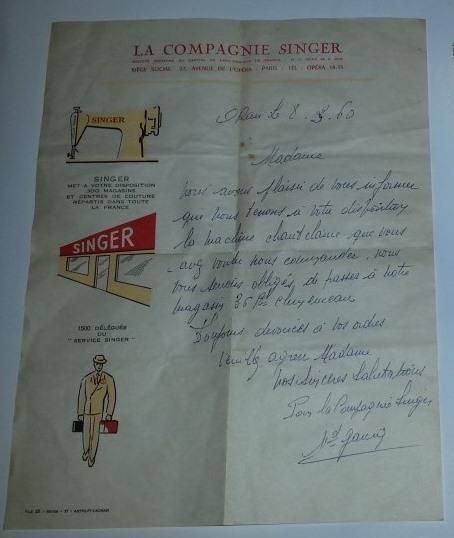 LA COMPAGNIE SINGER
SIÈGE SOCIAL : 23, AVENUE DE L'OPÉRA - PARIS - TÉL. : OPÉRA
Oran le 8 . 60
Madame
Nous avons plaisir de vous informer
que nous tenons à votre disposition
la machine que vous
avez voulu nous commander. nous
vous serions obligés, de passer à notre
magasin 35 Bd Clemenceau
Toujours dévoués à vos ordres
Veuillez agréer Madame
nos sincères Salutations
Pour la Compagnie Singer
SINGER
SINGER
MET A VOTRE DISPOSITION
300 MAGASINS
ET CENTRES DE COUTURE
RÉPARTIS DANS TOUTE
LA FRANCE
SINGER
1500 DÉLÉGUÉS
DU
"SERVICE SINGER"